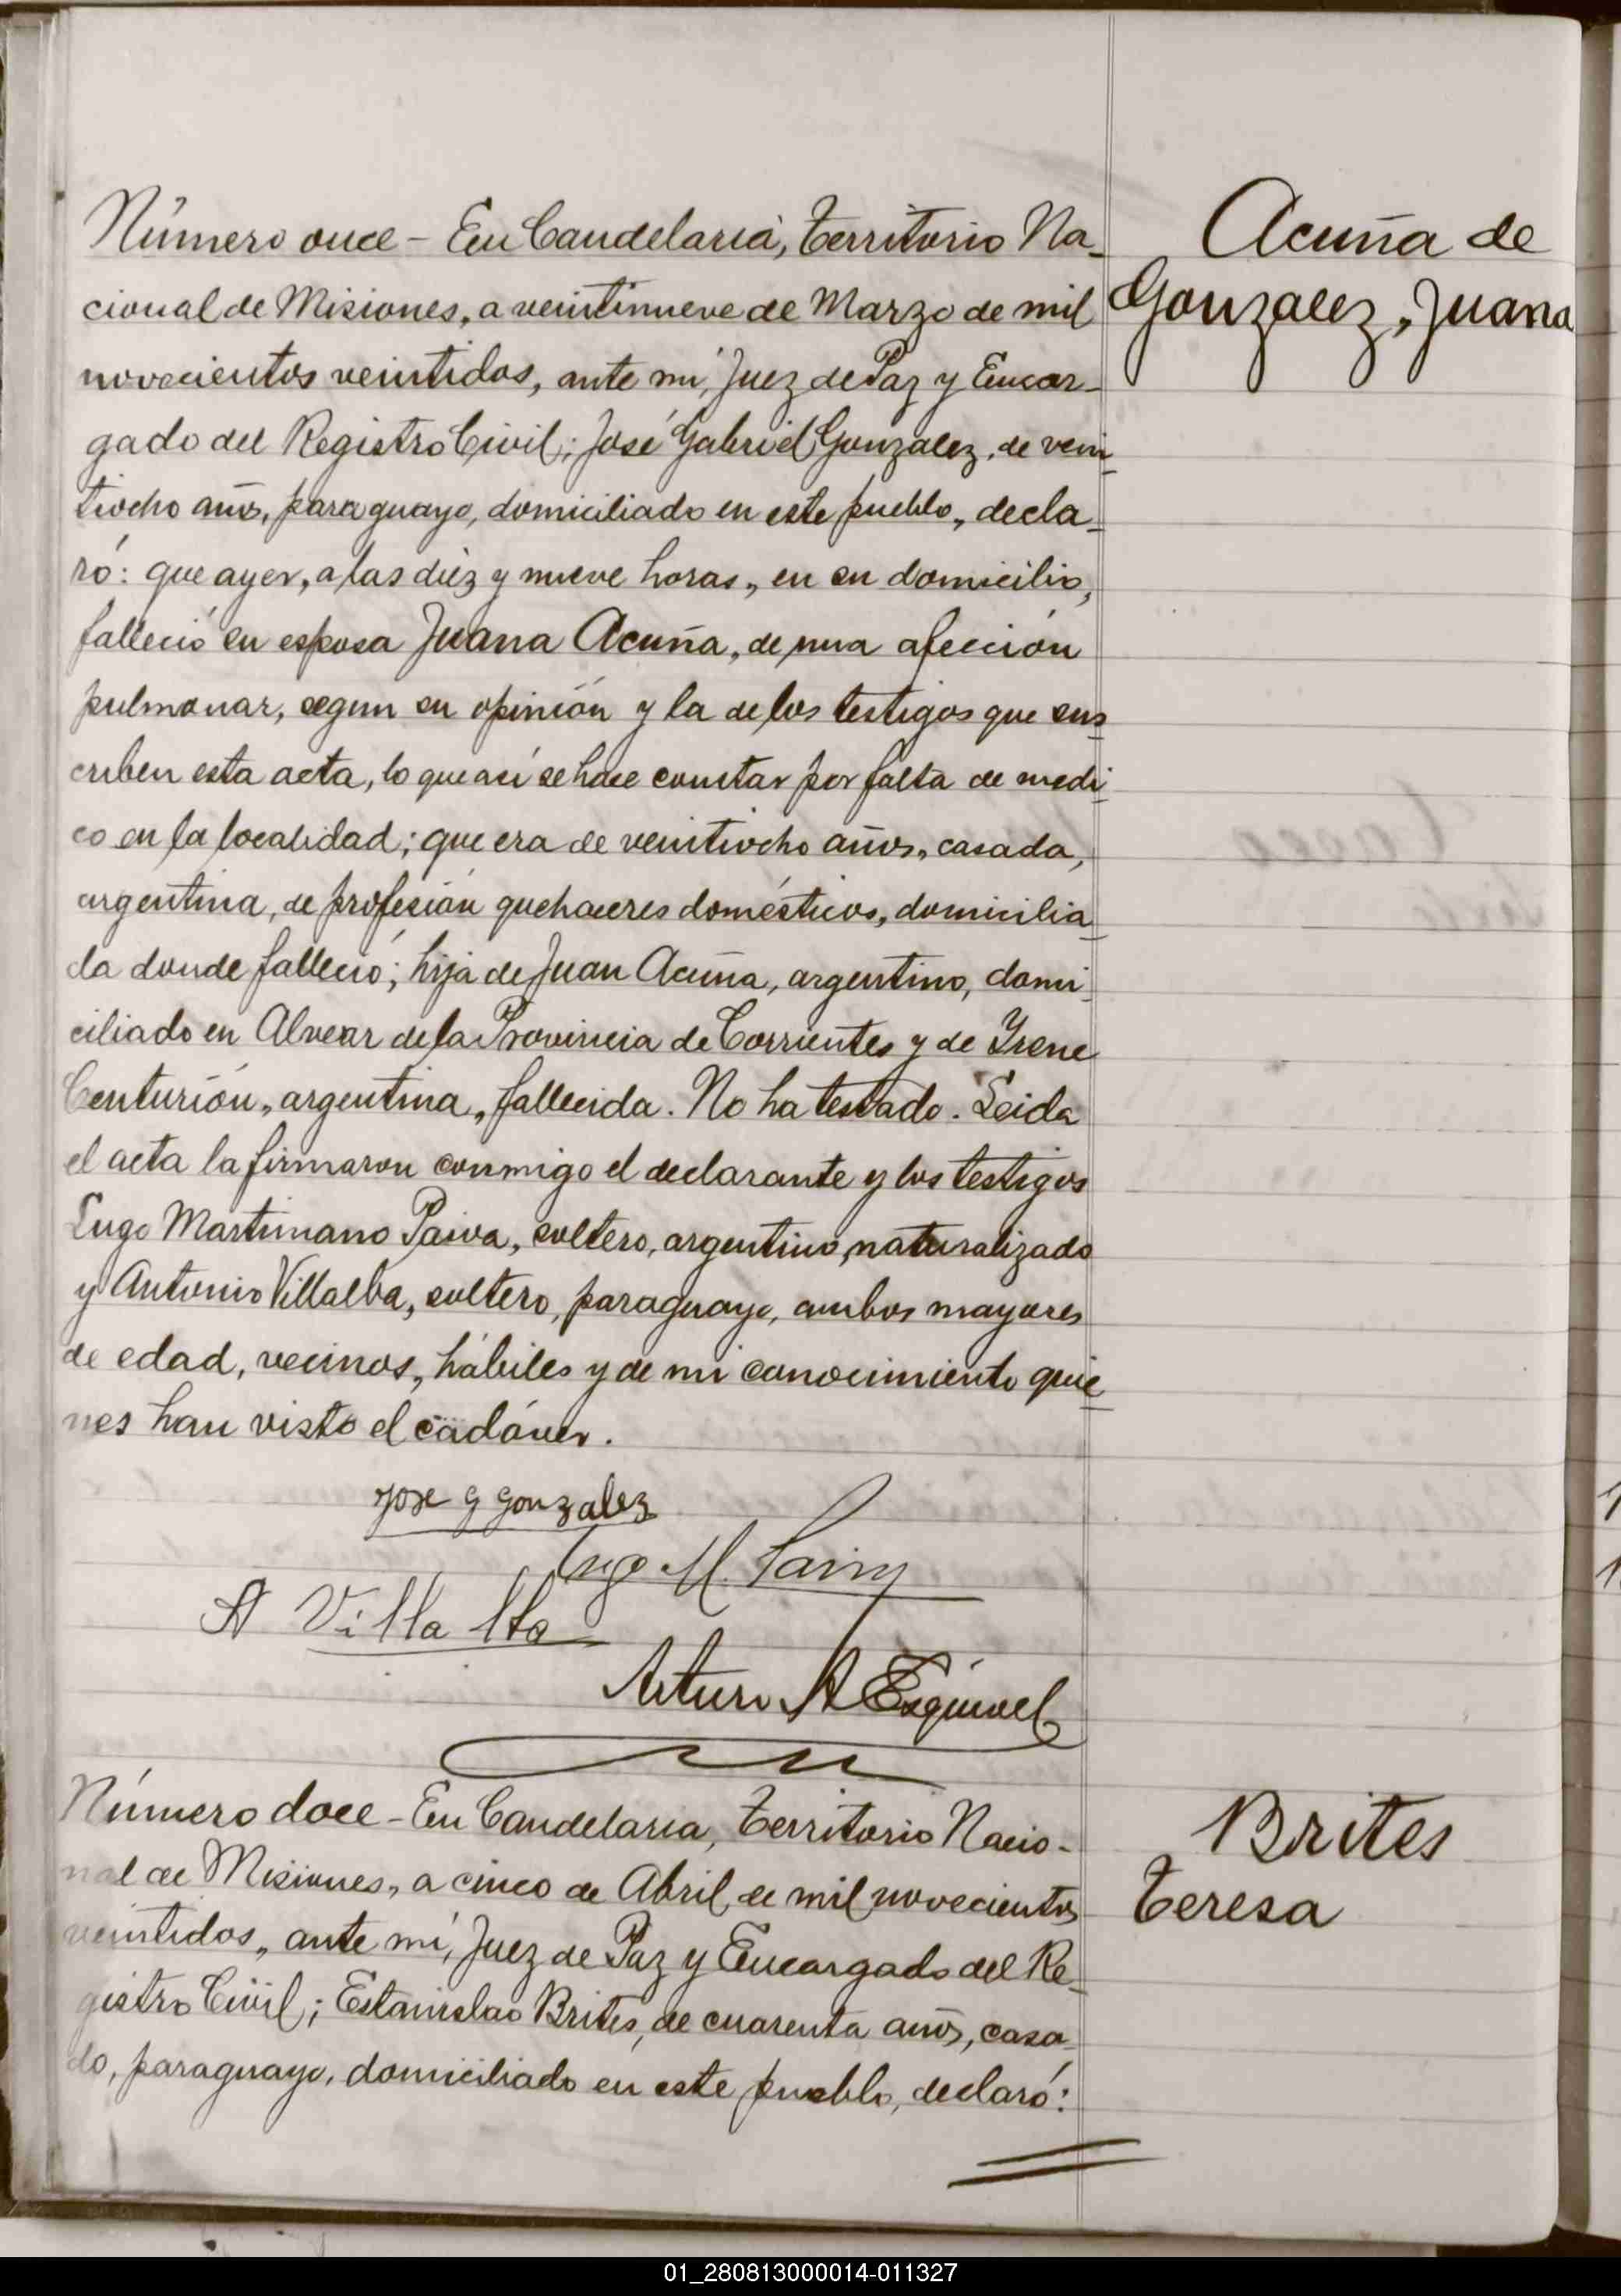 Número once - En Candelaria, territorio Na-
cional de Misiones, a veintinueve de Marzo de mil
novecientos veintidos, ante mí, Juez de Paz y Encar-
gado del Registro Civil; José Gabriel Gonzalez, de vein-
tiocho años, paraguayo, domiciliado en este pueblo, decla-
ró: que ayer, a las diez y nueve horas, en su domicilio,
falleció su esposa Juana Acuña, de una afección
pulmonar, segun su opinión y la de los testigos que sus-
criben esta acta, lo que así se hace constar por falta de medi-
co en la localidad; que era de veintiocho años, casada,
argentina, de profesión quehaceres domésticos, domicilia-
da donde falleció; hija de Juan Acuña, argentino, domi-
ciliado en Alvear de la Provincia de Corrientes y de Irene
Centurión, argentina, fallecida. No ha testado. Leida
el acta la firmaron conmigo el declarante y los testigos
Lugo Martimano Paiva, soltero, argentino, naturalizado
y Antonio Villalba, soltero, paraguayo, ambos mayores
de edad, vecinos, hábiles y de mi conocimiento quie-
nes han visto el cadáver.
Jose G Gonzalez
Lugo M. Paiva
A Villalba
Arturo A Esquivel
Número doce - En Candelaria, territorio Nacio-
nal de Misiones, a cinco de Abril de mil novecientos
veintidos, ante mí, Juez de Paz y Encargado del Re-
gistro Civil; Estanislao Brites, de cuarenta años, casa-
do, paraguayo, domiciliado en este pueblo, declaró:
Acuña de
Gonzalez, Juana
Brites
teresa
01_280813000014-011327